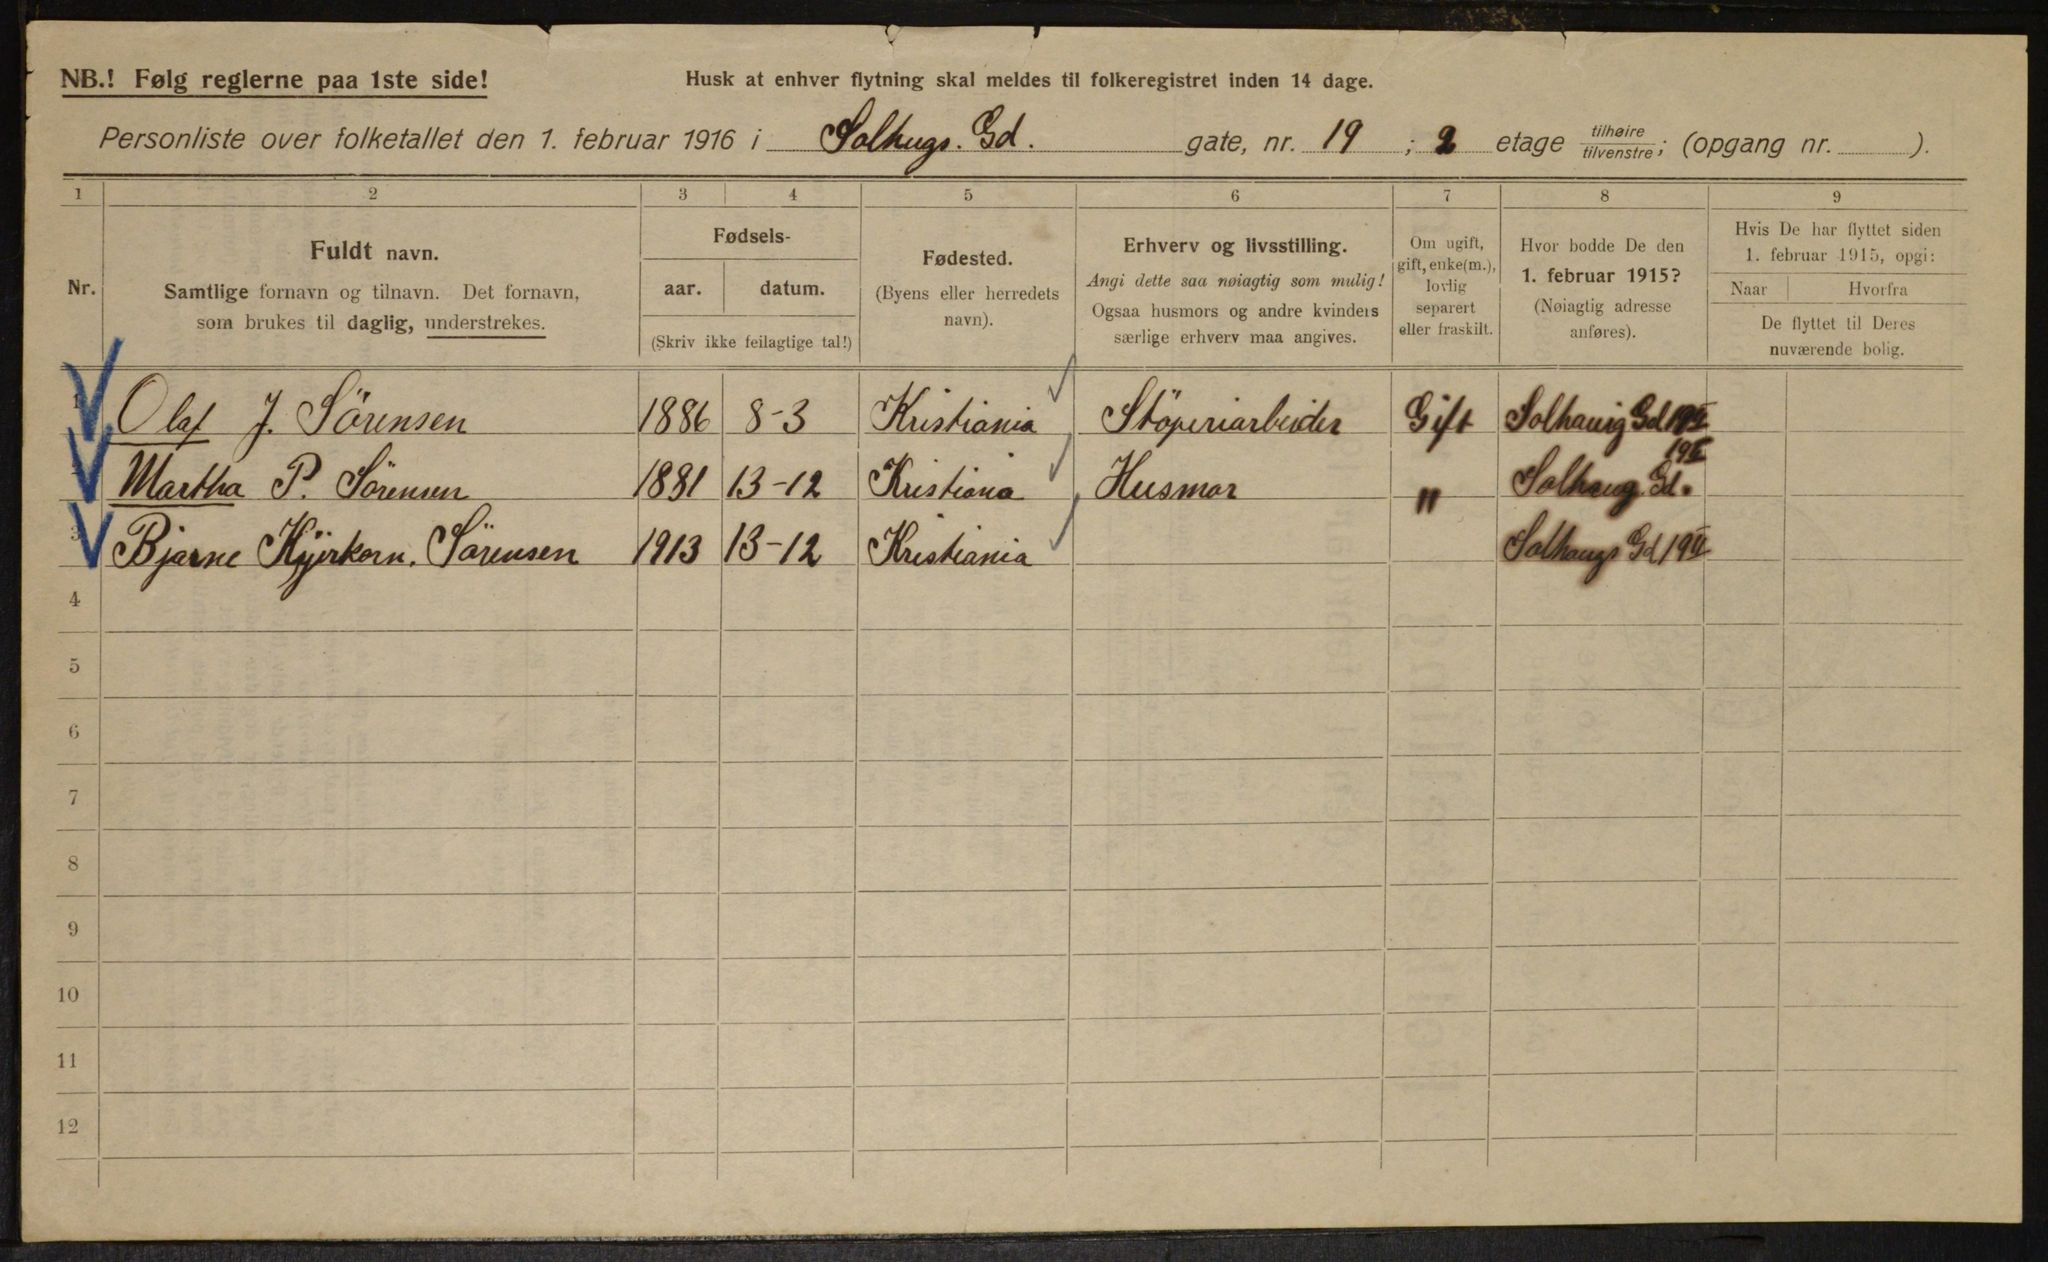 NB.! Følg reglerne paa 1ste side!
Husk at enhver flytning skal meldes til folkeregistret inden 14 dage.
Personliste over folketallet den 1. februar 1916 i Solhugs. Gd. gate, nr. 19 ; 2 etage tilhøire/tilvenstre; (opgang nr. ).
1 2 3 4 5 6 7 8 9
Nr.
Fuldt navn.
Samtlige fornavn og tilnavn. Det fornavn,
som brukes til daglig, understrekes.
Fødsels-
aar. datum.
(Skriv ikke feilagtige tal!)
Fødested.
(Byens eller herredets
navn).
Erhverv og livsstilling.
Angi dette saa nøiagtig som mulig!
Ogsaa husmors og andre kvinders
særlige erhverv maa angives.
Om ugift,
gift, enke(m.),
lovlig
separert
eller fraskilt.
Hvor bodde De den
1. februar 1915?
(Nøiagtig adresse
anføres).
Hvis De har flyttet siden
1. februar 1915, opgi:
Naar Hvorfra
De flyttet til Deres
nuværende bolig.
1 Olaf J. Sörensen 1886 8-3 Kristiania Stöperiarbeider Gift Solhaug Gd 19 II
2 Martha P. Sörensen 1881 13-12 Kristiania Husmor " Solhaug. Gd. 19 II
3 Bjarne Sörensen 1913 13-12 Kristiania Solhaugs Gd 19 II
4
5
6
7
8
9
10
11
12